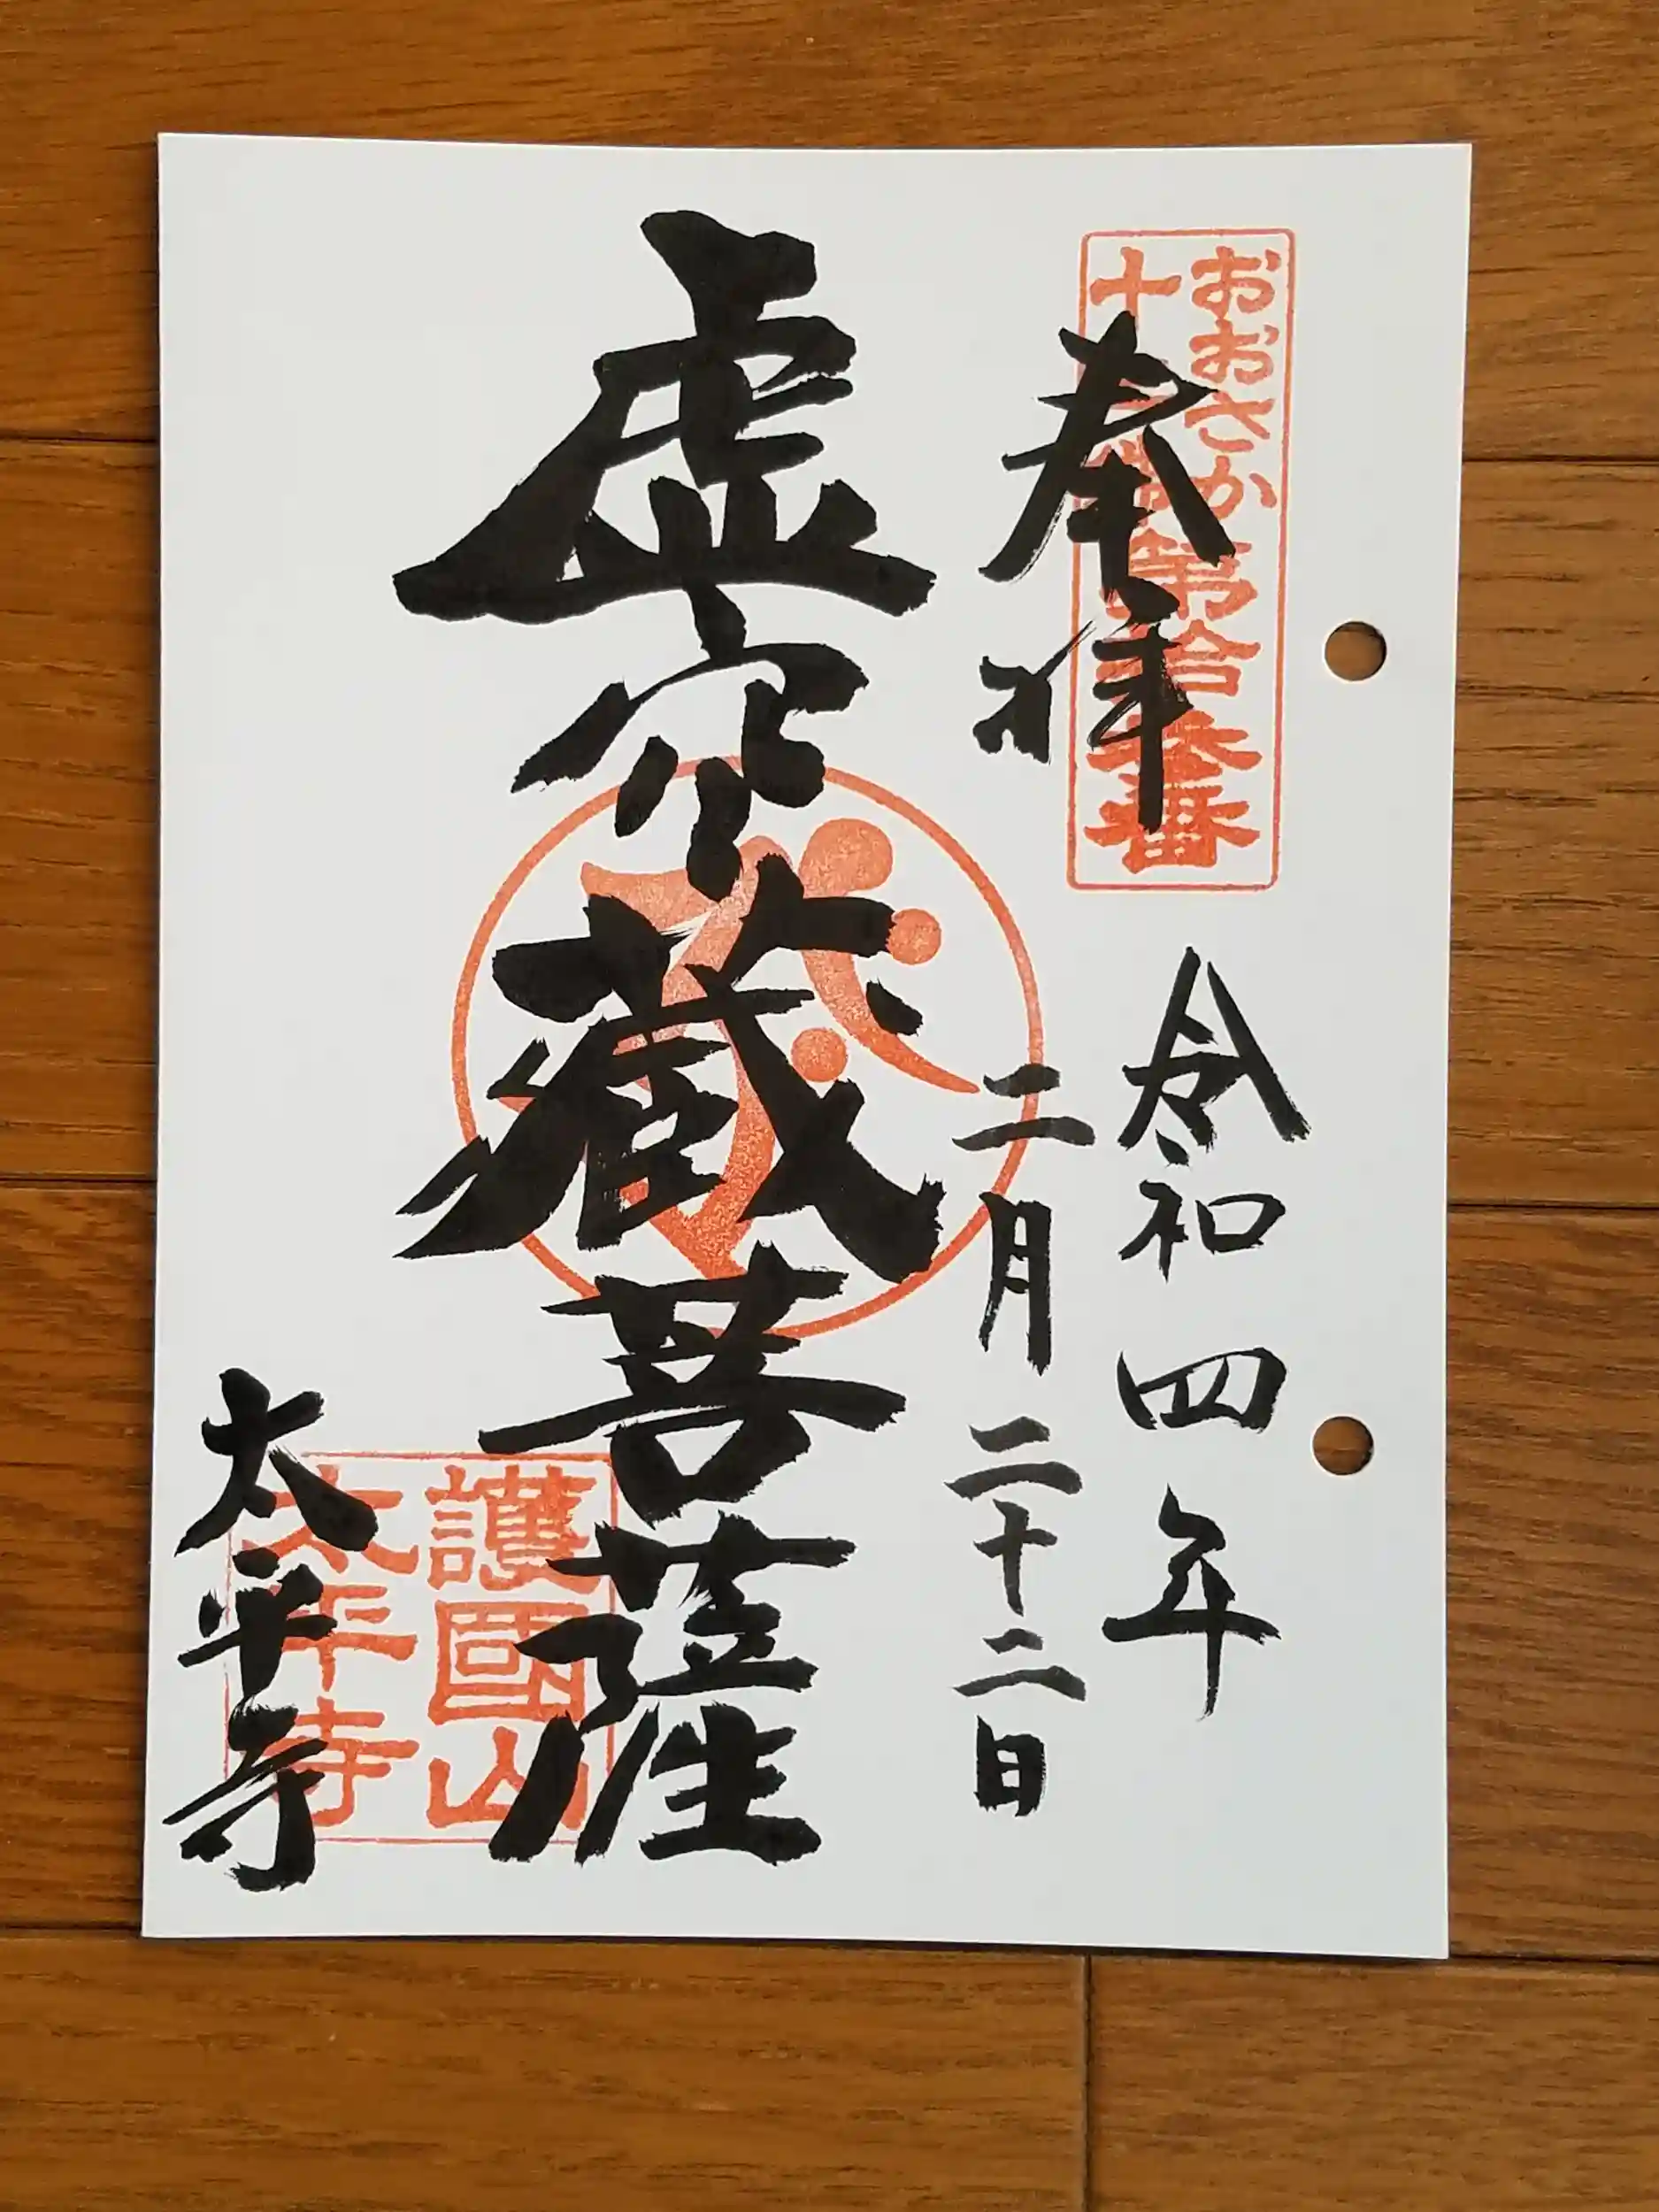 おおさか
十
第拾参番
奉拝
令和四年
二月二十二日
虚空蔵菩薩
護國山
太平寺
太平寺